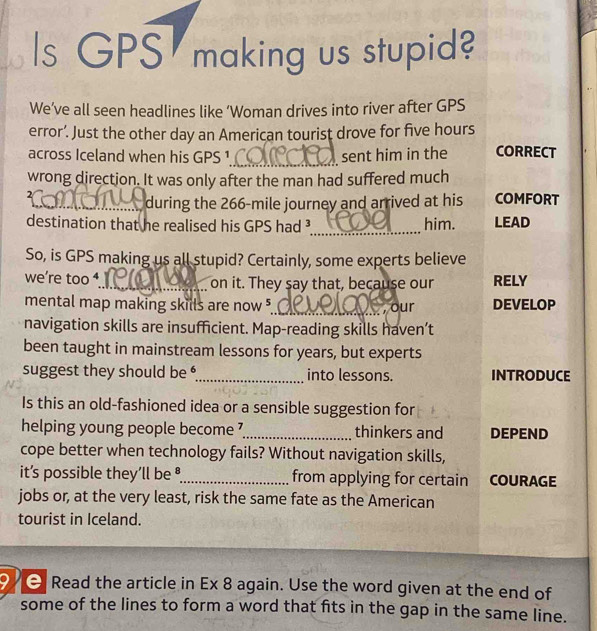 Is GPS making us stupid?
We've all seen headlines like 'Woman drives into river after GPS
error'. Just the other day an American tourist drove for five hours
across Iceland when his GPS ¹ corrected sent him in the CORRECT
wrong direction. It was only after the man had suffered much
² during the 266-mile journey and arrived at his COMFORT
destination that he realised his GPS had ³ him. LEAD
So, is GPS making us all stupid? Certainly, some experts believe
we're too ⁴ on it. They say that, because our RELY
mental map making skills are now ⁵ developed, our DEVELOP
navigation skills are insufficient. Map-reading skills haven't
been taught in mainstream lessons for years, but experts
suggest they should be ⁶ into lessons. INTRODUCE
Is this an old-fashioned idea or a sensible suggestion for
helping young people become ⁷ thinkers and DEPEND
cope better when technology fails? Without navigation skills,
it's possible they'll be ⁸ from applying for certain COURAGE
jobs or, at the very least, risk the same fate as the American
tourist in Iceland.
9 e Read the article in Ex 8 again. Use the word given at the end of
some of the lines to form a word that fits in the gap in the same line.